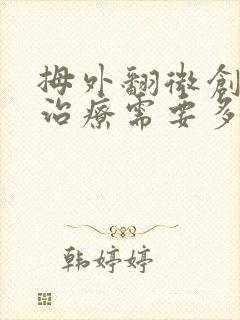 拇外翻微創
治療需要多
韩婷婷